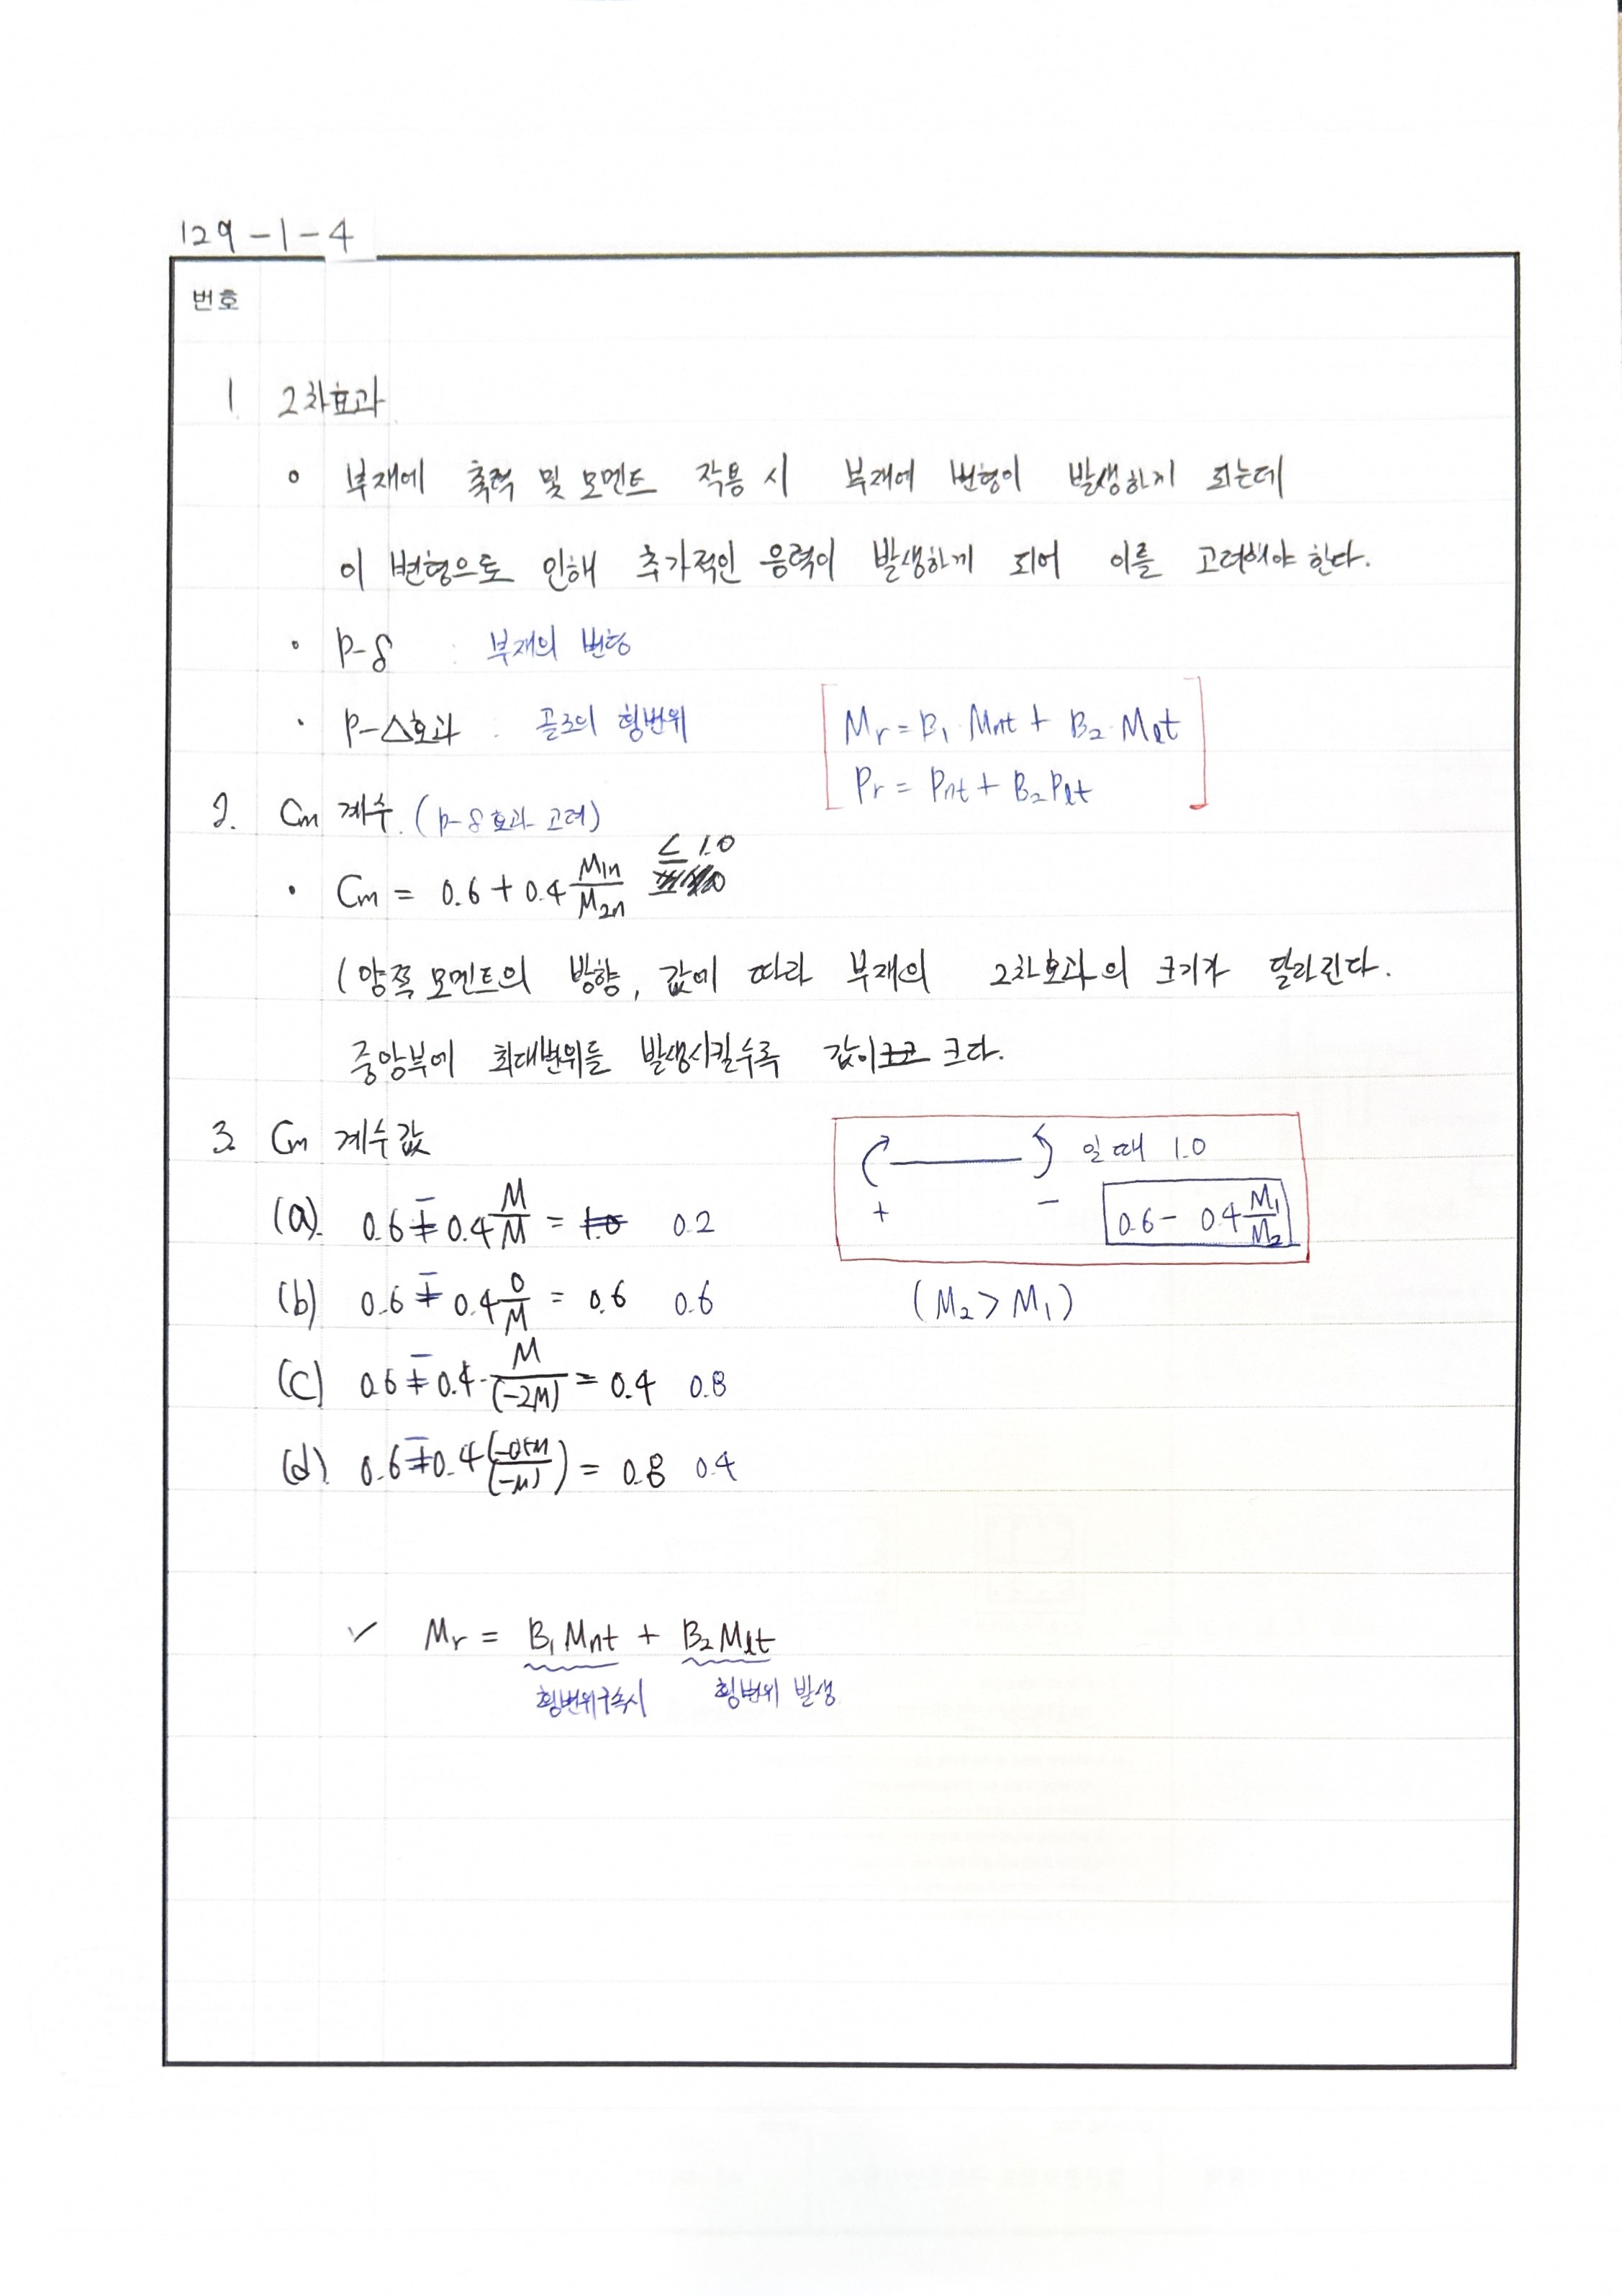 129-1-4
번호
1. 2차효과
◦ 부재에 축력 및 모멘트 작용 시 부재에 변형이 발생하게 되는데
이 변형으로 인해 추가적인 응력이 발생하게 되어 이를 고려해야 한다.
• P-δ : 부재의 변형
• P-△효과 : 골조의 횡변위
Mr = B₁·Mnt + B₂·Mℓt
Pr = Pnt + B₂Pℓt
2. Cm 계수. (P-δ 효과 고려)
• Cm = 0.6 + 0.4 M1n/M2n ≤ 1.0
(양쪽 모멘트의 방향, 값에 따라 부재의 2차효과의 크기가 달라진다.
중앙부에 최대변위를 발생시킬수록 값이 크다.
3. Cm 계수값
일 때 1.0
+ - 0.6 - 0.4 M₁/M₂
(M₂ > M₁)
(a). 0.6 ∓ 0.4 M/M = 1.0 0.2
(b) 0.6 ∓ 0.4 0/M = 0.6 0.6
(c) 0.6 ∓ 0.4· M/(-2M) = 0.4 0.8
(d). 0.6 ∓ 0.4 (-0.5M/(-M)) = 0.8 0.4
✓ Mr = B₁Mnt + B₂Mℓt
횡변위구속시 횡변위 발생